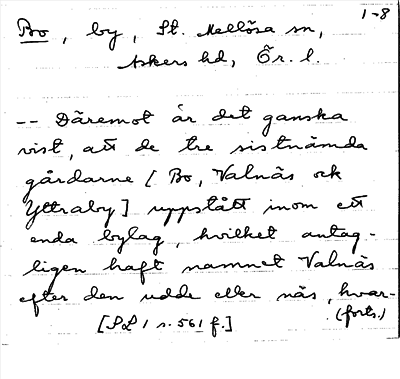 1-8
Bo, by, St. Mellösa sn,
Askers hd, Ör. l.
-- Däremot är det ganska
vist, att de tre sistnämda
gårdarne [Bo, Valnäs och
Yttraby] uppstått inom ett
enda bylag, hvilket antag-
ligen haft namnet Valnäs
efter den udde eller näs, hvar-
(forts.)
[SL 1 s. 561 f.]